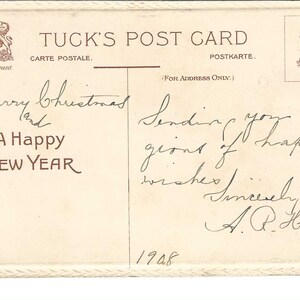 TUCK'S POST CARD
CARTE POSTALE. POSTKARTE.
(FOR ADDRESS ONLY.)
erry Christmas
and
A HAPPY
EW YEAR
Sending you
giant of hap
wishes
Sincerely
A. P. H
1908